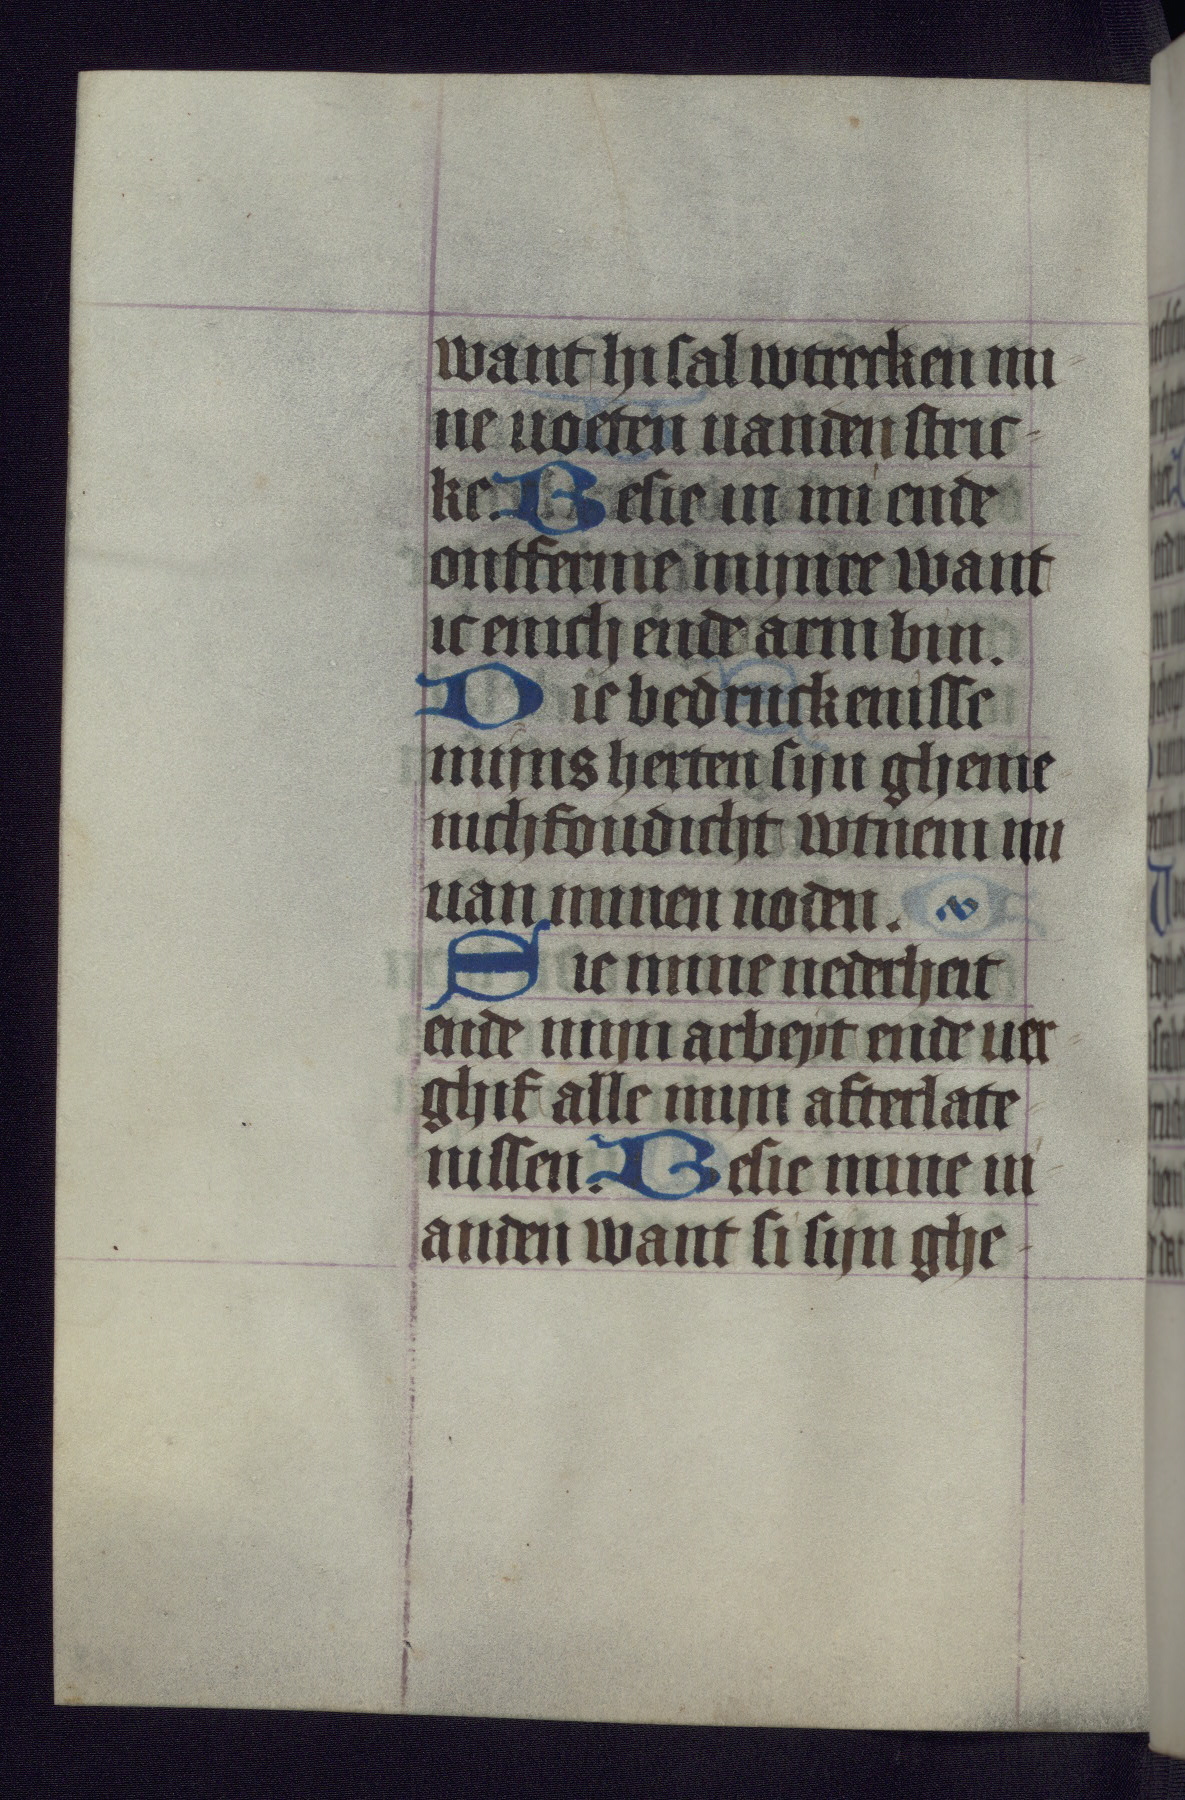 want hi sal wtrecken mi-
ne uoeten uanden stric-
ke. Besie in mi ende
ontferme mijnre want
ic enich ende arm bin.
Die bedruckenisse
mijns herten sijn gheme-
nichfoudicht wtnem mi
uan minen noden.
Sie mine nederheit
ende mijn arbeijt ende uer-
ghif alle mijn afterlate-
nissen. Besie mine ui-
anden want si sijn ghe-